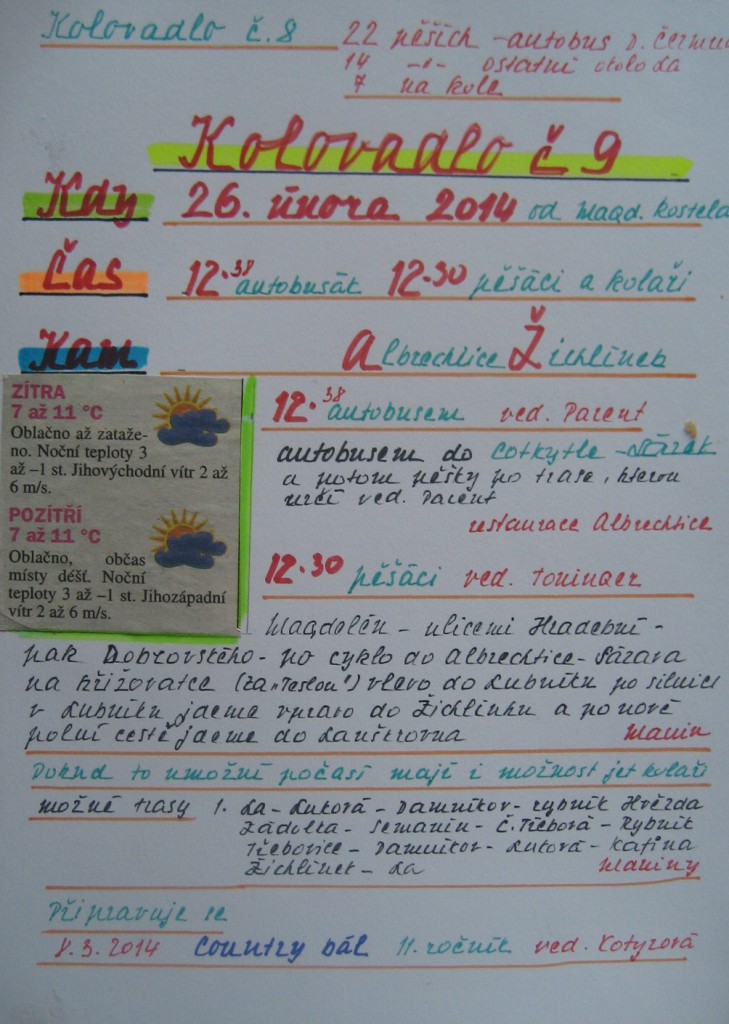 Kolovadlo č.8
22 pěších - autobus D. Čermn
14 -"- ostatní okolo La
7 na kole
Kolovadlo č 9
Kdy 26. února 2014 od Magd. kostela
Čas 12.38 autobusák 12.30 pěšáci a kolaři
Kam Albrechtice Žichlínek
ZÍTRA
7 až 11 °C
Oblačno až zataže-
no. Noční teploty 3
až –1 st. Jihovýchodní vítr 2 až
6 m/s.
POZÍTŘÍ
7 až 11 °C
Oblačno, občas
místy déšť. Noční
teploty 3 až –1 st. Jihozápadní
vítr 2 až 6 m/s.
12.38 autobusem ved. Parent
autobusem do Cotkytle - Stázek
a potom pěšky po trase, kterou
určí ved. Parent
restaurace Albrechtice
12.30 pěšáci ved.
Magdalén - ulicemi Hradební -
pak Dobrovského - po cyklo do Albrechtice - Sázava
na křižovatce (za "Teslou") vlevo do Lubníku po silnici
v Lubníku jdeme vpravo do Žichlínku a po nové
polní cestě jdeme do Lanškrouna
Dokud to umožní počasí mají i možnost jet kolaři
možné trasy 1. La - Luková - Damníkov - rybník Hvězda
Zádolka - Semanín - Č. Třebová - Rybník
Třebovice - Damníkov - Luková - Kafina
Žichlínek - La
Připravuje se
8.3.2014 Country bál 11. ročník ved. Kotyzová